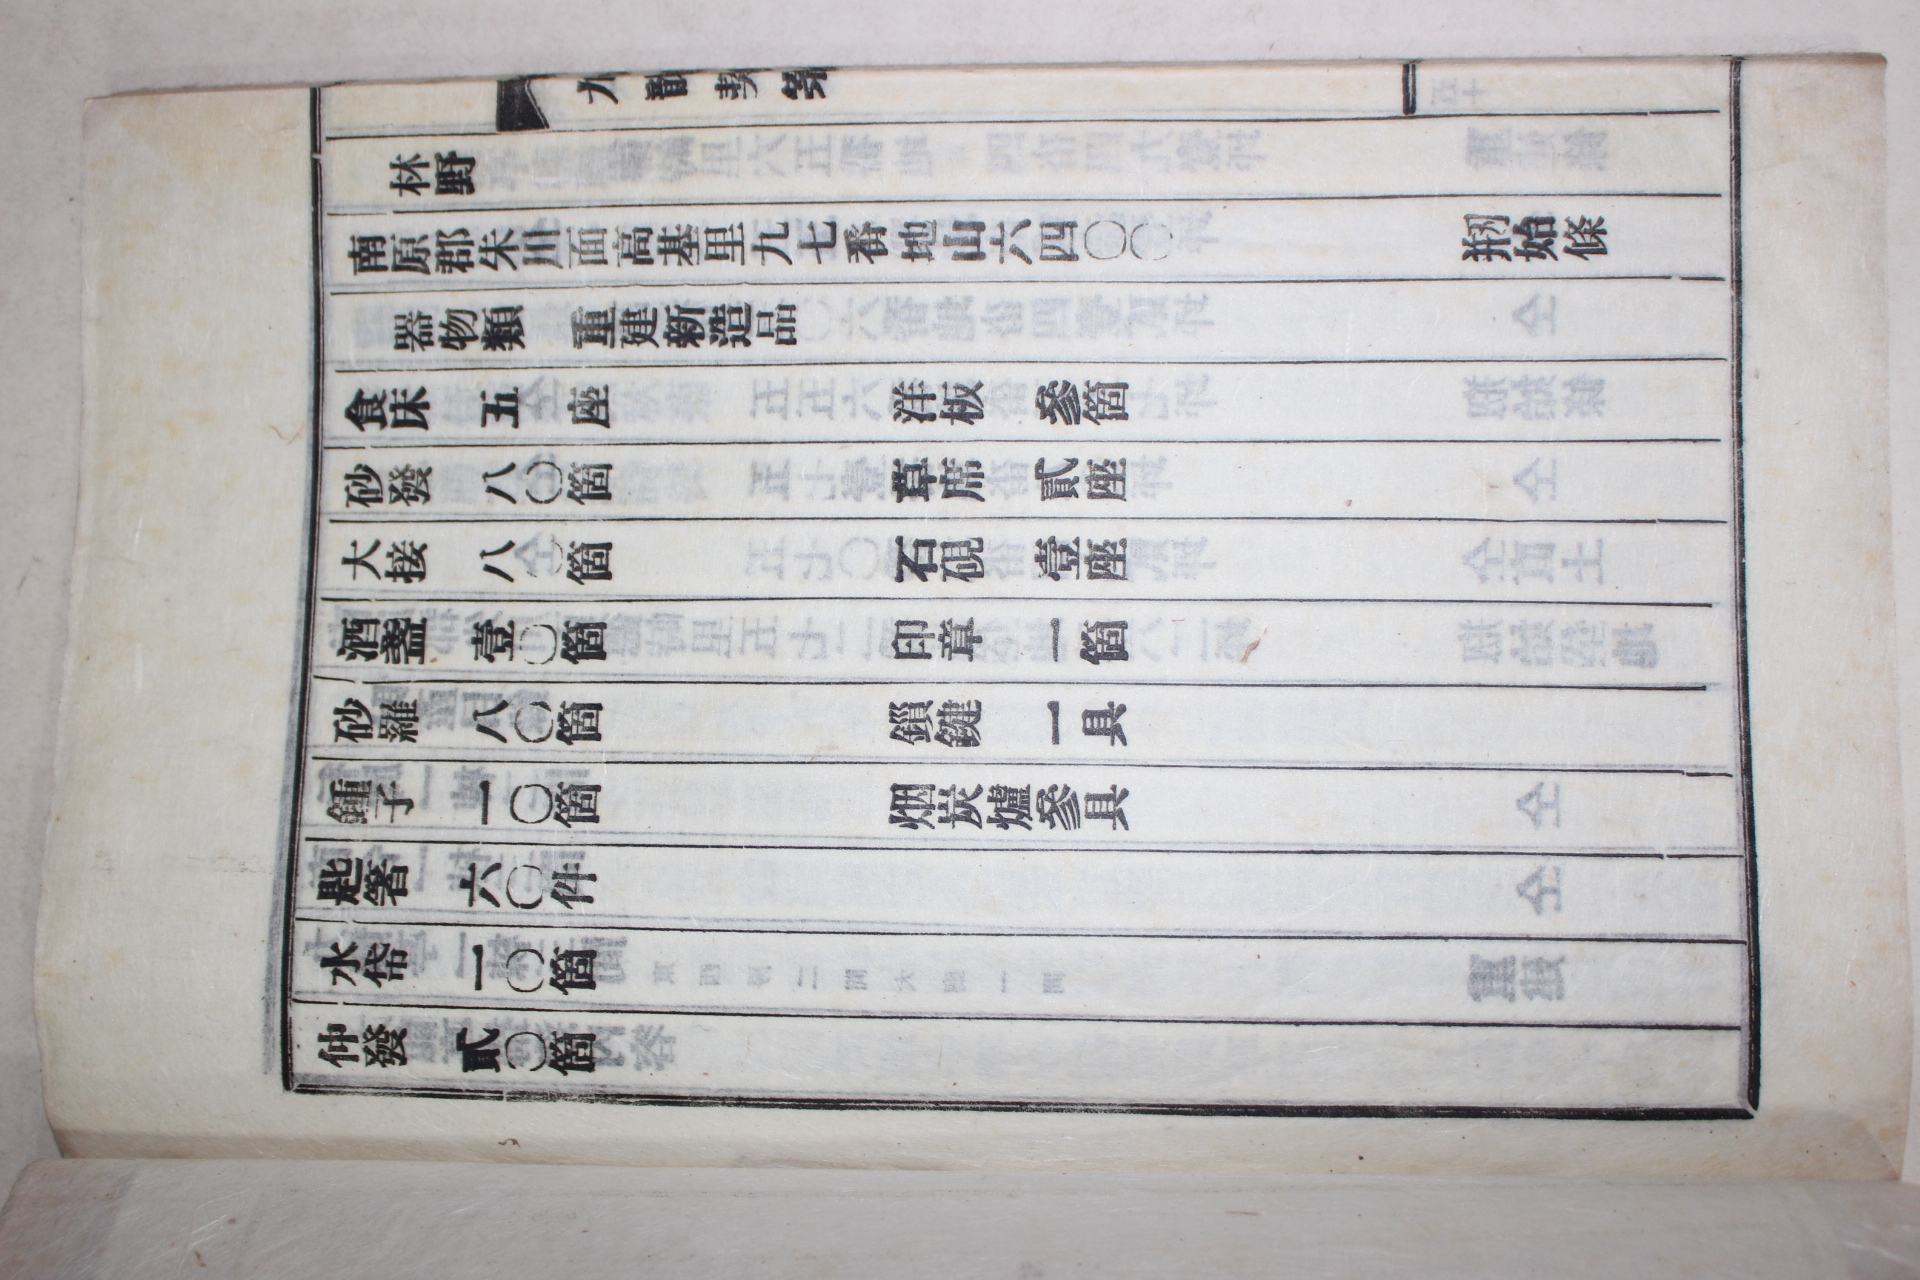 契
林野
南原郡朱川面高基里九七番地山六四〇〇 剏始條
器物類 重建新造品
食床 五 座 洋板 參箇
砂發 八〇箇 草席 貳座
大接 八〇箇 石硯 壹座
酒盞 壹〇箇 印章 一箇
砂羅 八〇箇 鎖鍵 一具
鍾子 一〇箇 烟炭爐參具
匙箸 六〇件
水帒 一〇箇
仲發 貳〇箇